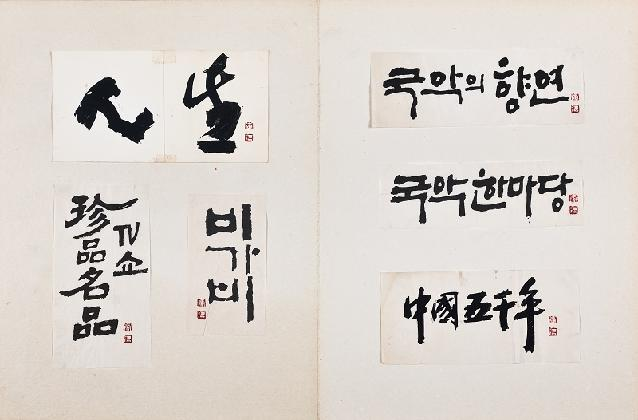 人生
TV쇼
珍品名品
비가비
국악의 향연
국악 한마당
中國五千年